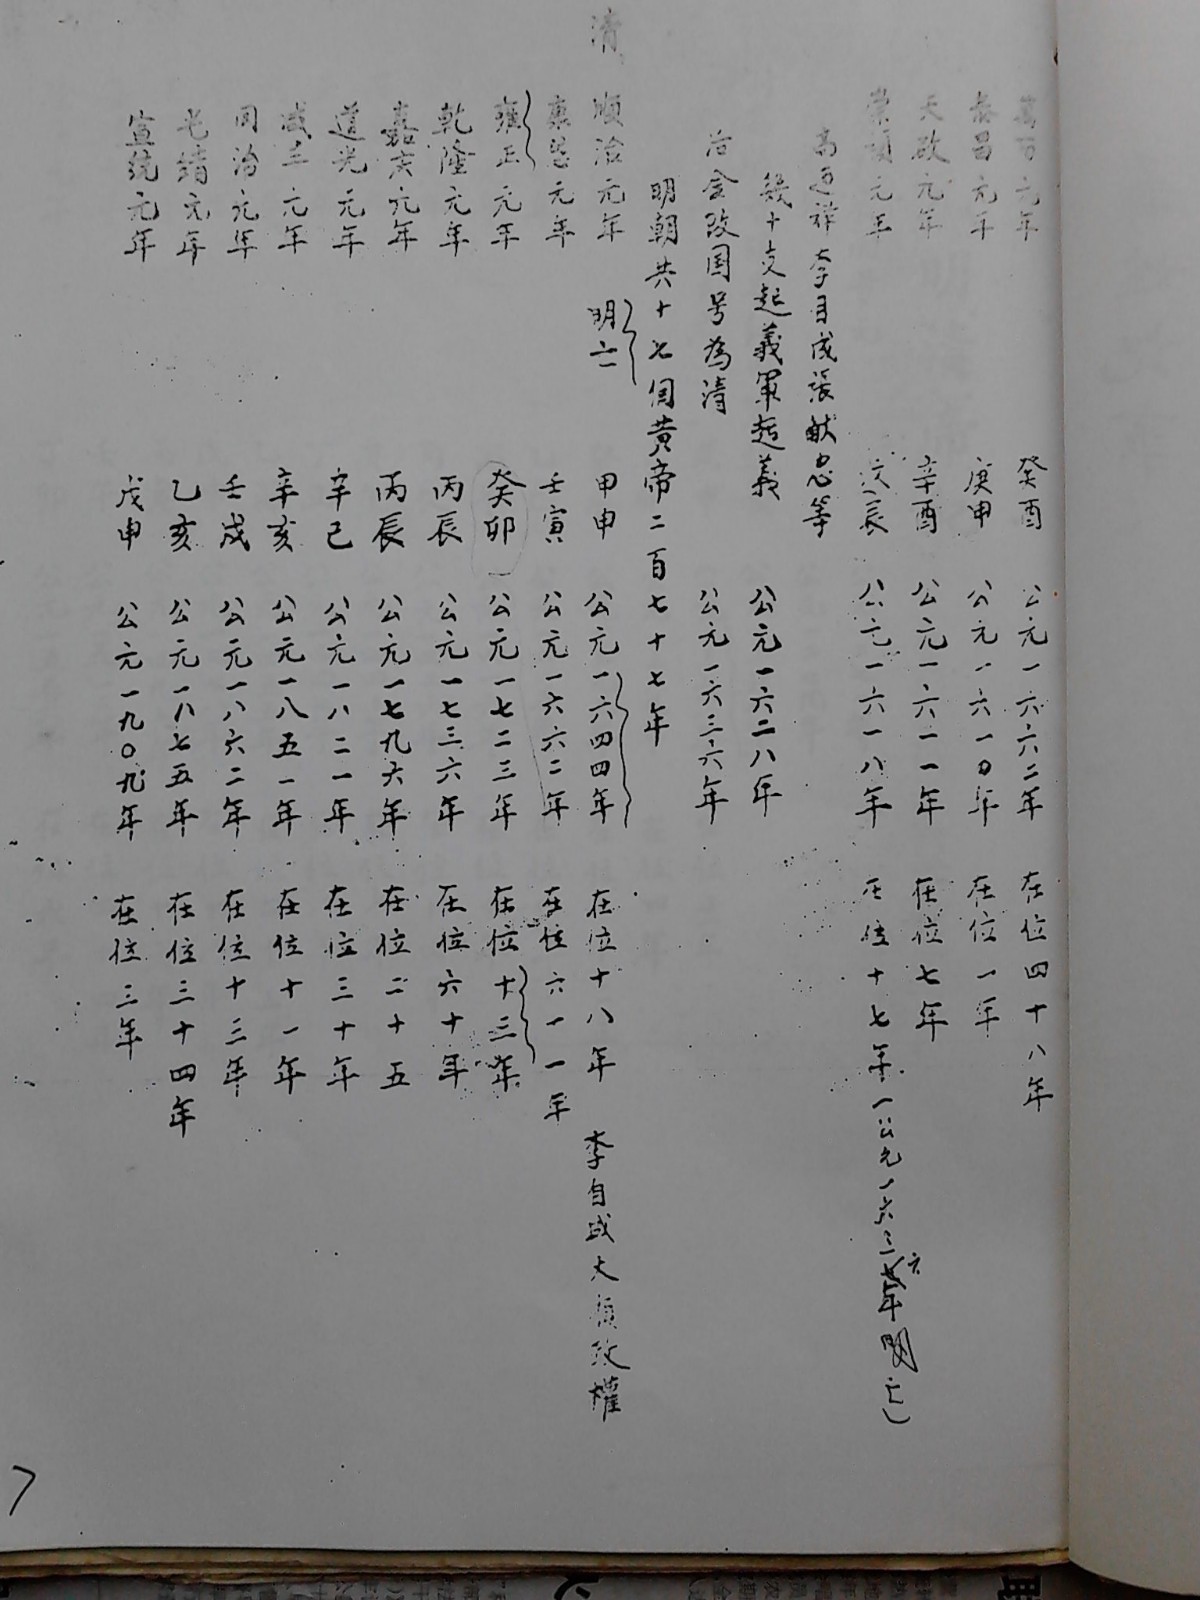 萬历元年 癸酉 公元一六六二年 在位四十八年
泰昌元年 庚申 公元一六一0年 在位一年
天啟元年 辛酉 公元一六一一年 在位七年
崇禎元年 戊辰 公元一六一八年 在位十七年(公元一六三六年明亡)
高迎祥李自成張献忠等
幾十支起義軍起義 公元一六二八年
后金改国号為清 公元一六三六年
明朝共十七個黄帝二百七十七年
清
順治元年 明亡 甲申 公元一六四四年 在位十八年 李自成大順政權
康熙元年 壬寅 公元一六六二年 在位六一一年
雍正元年 癸卯 公元一七二三年 在位十三年
乾隆元年 丙辰 公元一七三六年 在位六十年
嘉慶元年 丙辰 公元一七九六年 在位二十五
道光元年 辛巳 公元一八二一年 在位三十年
咸丰元年 辛亥 公元一八五一年 在位十一年
同治元年 壬戌 公元一八六二年 在位十三年
光緒元年 乙亥 公元一八七五年 在位三十四年
宣统元年 戊申 公元一九〇九年 在位三年
7